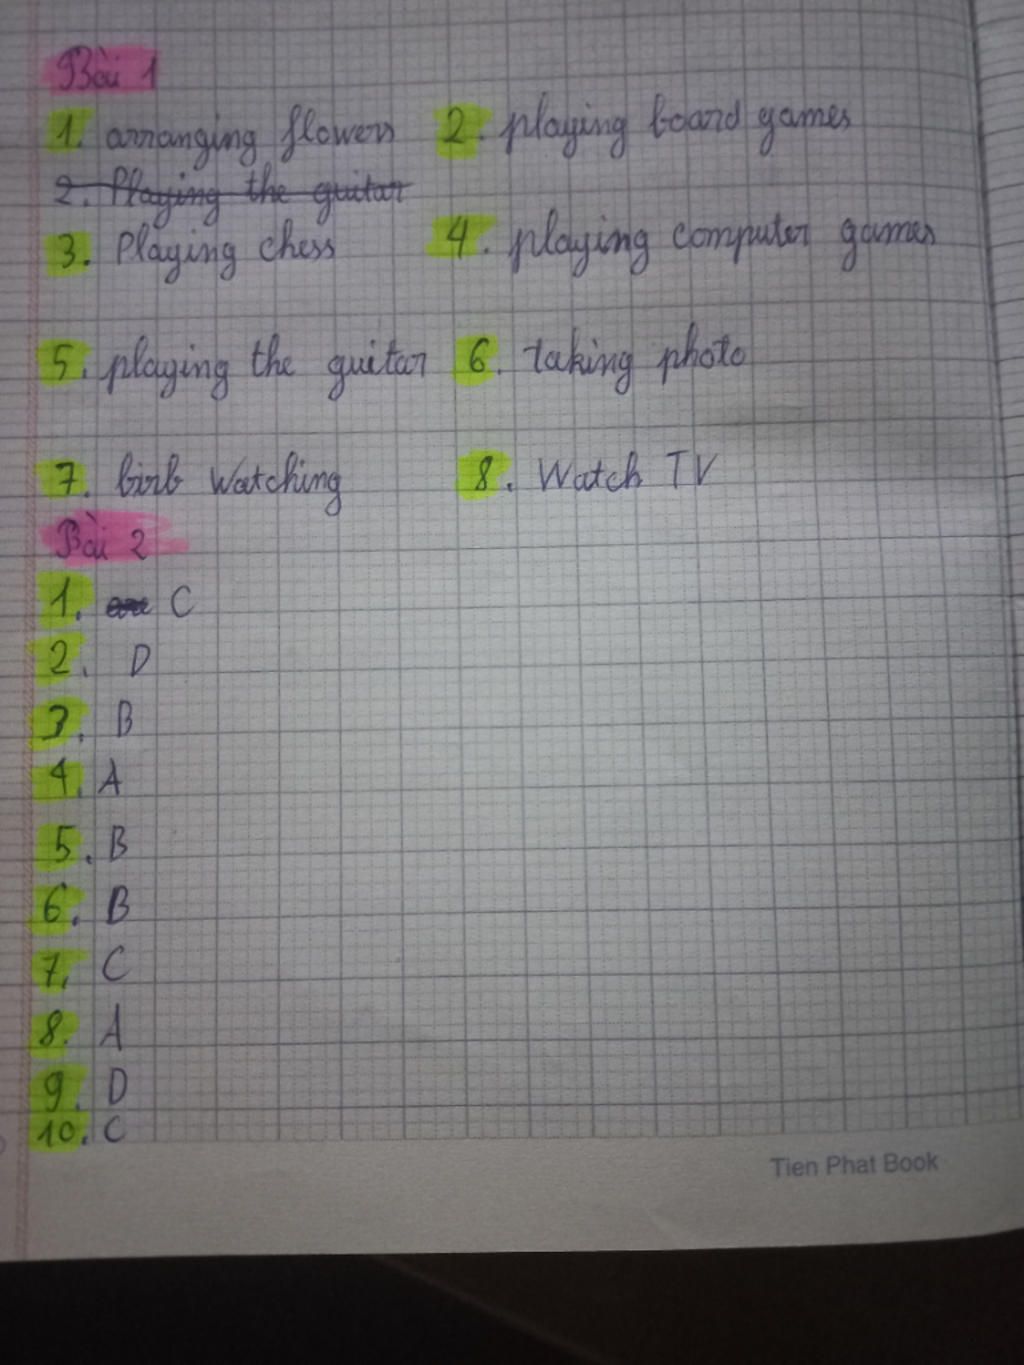 Bài 1
1. arranging flowers 2. playing board games
2. Playing the guitar
3. Playing chess 4. playing computer games
5. playing the guitar 6. taking photo
7. birb watching 8. Watch TV
Bài 2
1. C
2. D
3. B
4. A
5. B
6. B
7. C
8. A
9. D
10. C
Tien Phat Book